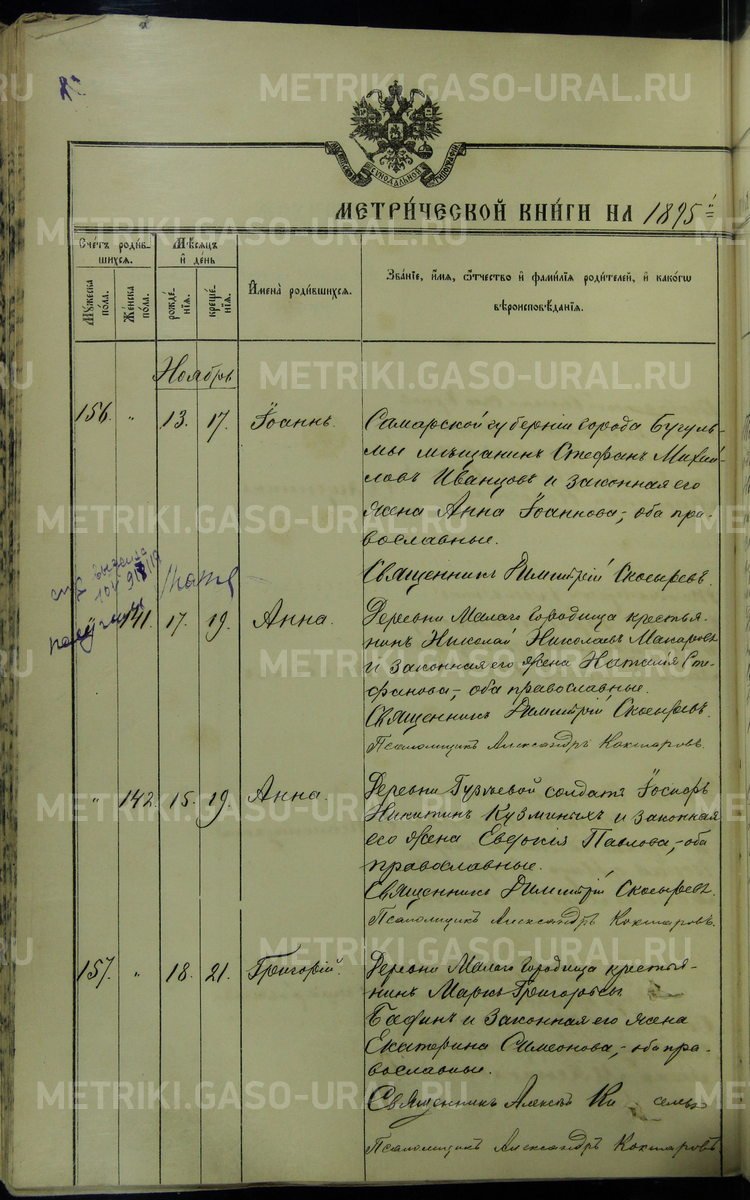 МЕТРИ́ЧЕСКОЙ КНИ́ГИ НА 1895 й
Сче́тъ роди́в-
шихся.
Му́жеска по́ла.
Же́нска по́ла.
Мѣ́сяцъ
и҆ де́нь
рожде́-
нїѧ.
креще́-
нїѧ.
И҆мена̀ роди́вшихся.
Зва́нїе, и҆́мя, ѻ҆́тчество и҆ фами́лїя роди́телей, и҆ како́гѡ
вѣроисповѣ́данїя.
Ноябрь
156. " 13. 17. Іоаннъ.
Самарской губерніи города Бугуль-
мы мѣщанинъ Стефанъ Михай-
ловъ Иванцовъ и законная его
жена Анна Іоаннова,- оба пра-
вославные.
Священникъ Димитрій Скосыревъ.
141. 17. 19. Анна.
Деревни Малаго Городища крестья-
нинъ Николай Николаевъ Макаровъ
и законная его жена Наталія Сте-
фанова,- оба православные.
Священникъ Димитрій Скосыревъ.
Псаломщикъ Александръ Кокшаровъ.
" 142. 15. 19. Анна.
Деревни Гузѣевой солдатъ Іосифъ
Никитинъ Кузминыхъ и законная
его жена Евдокія Павлова,- оба
православные.
Священникъ Димитрій Скосыревъ.
Псаломщикъ Александръ Кокшаровъ.
157. " 18. 21. Григорій.
Деревни Малаго Городища крестья-
нинъ Маркъ Григорьевъ
Бафинъ и законная его жена
Екатерина Симеонова,- оба пра-
вославные.
Священникъ Алексѣй
Псаломщикъ Александръ Кокшаровъ
METRIKI.GASO-URAL.RU